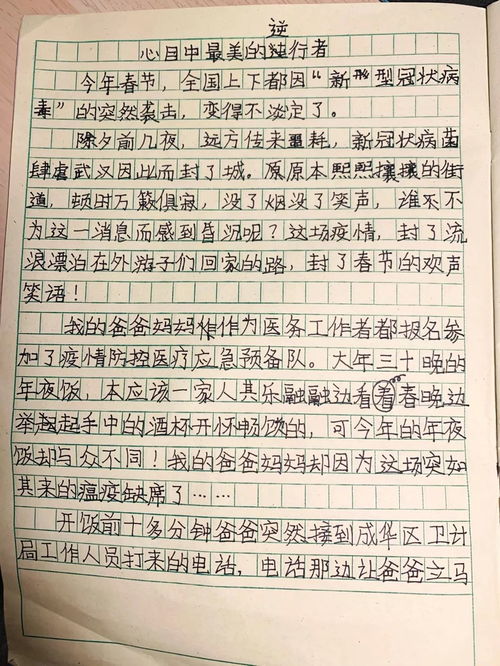 逆
心目中最美的独行者
今年春节，全国上下都因“新形型冠状病
毒”的突然袭击，变得不淡定了。
除夕前几夜，远方传来噩耗，新冠状病菌
肆虐武汉因此而封了城。原原本熙熙攘攘的街
道，顿时万籁俱寂，没了烟没了笑声，谁不不
为这一消息而感到昏沉呢？这场疫情，封了流
浪漂泊在外游子们回家的路，封了春节的欢声
笑语！
我的爸爸妈妈作作为医务工作者都报名参
加了疫情防控医疗应急预备队。大年三十晚的
年夜饭，本应该一家人其乐融融边看着春晚边
举起手中的酒杯开怀畅饮的，可今年的年夜
饭却与众不同！我的爸爸妈妈却因为这场突如
其来的瘟疫缺席了……
开饭前十多分钟爸爸突然接到成华区卫计
局工作人员打来的电话，电话那边让爸爸立马